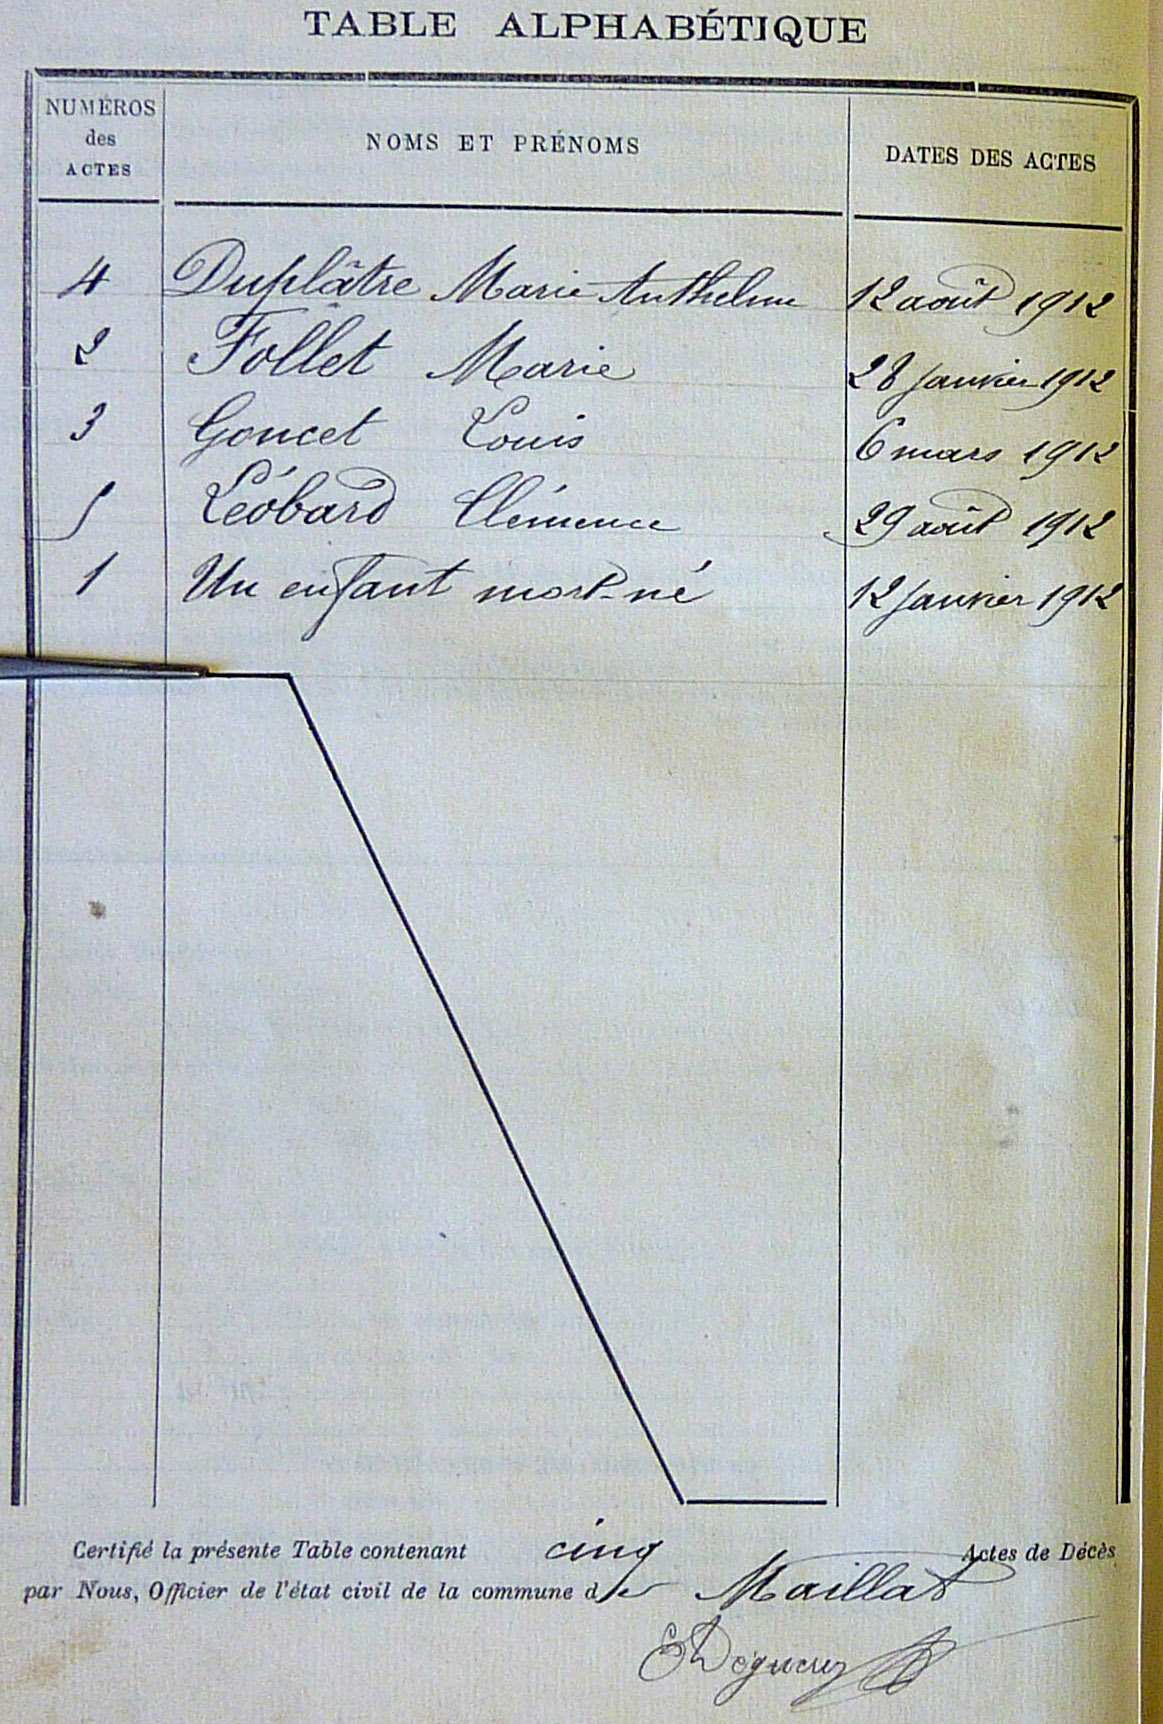 TABLE ALPHABÉTIQUE
NUMÉROS des ACTES NOMS ET PRÉNOMS DATES DES ACTES
4 Duplâtre Marie Anthelme 12 août 1912
2 Follet Marie 28 janvier 1912
3 Goncet Louis 6 mars 1912
5 Léobard Clémence 29 août 1912
1 Un enfant mort-né 12 janvier 1912
Certifié la présente Table contenant cinq Actes de Décès
par Nous, Officier de l'état civil de la commune de Maillat